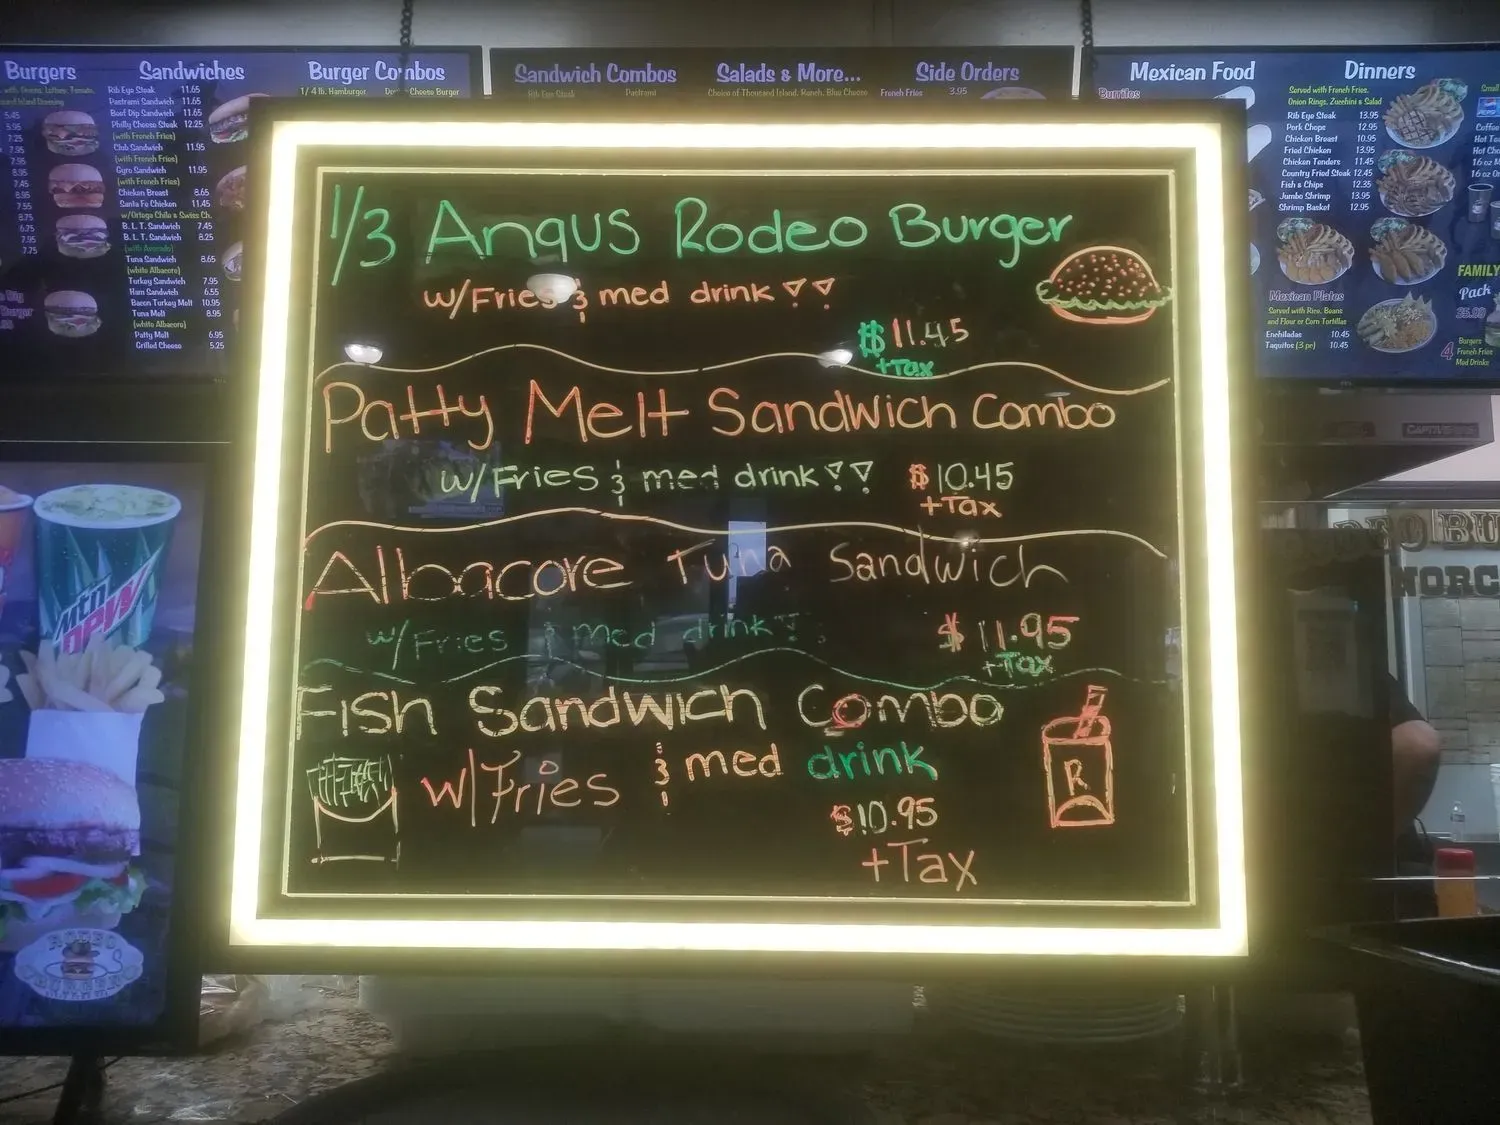 Burgers
5.45
5.95
7.25
7.95
7.95
8.95
7.45
8.95
7.55
8.75
6.75
7.95
7.75
Sandwiches
Rib Eye Steak 11.65
Pastrami Sandwich 11.65
Beef Dip Sandwich 11.65
Philly Cheese Steak 12.25
(with French Fries)
Club Sandwich 11.95
(with French Fries)
Gyro Sandwich 11.95
(with French Fries)
Chicken Breast 8.65
Santa Fe Chicken 11.45
w/Ortega Chile & Swiss Ch.
B. L. T. Sandwich 7.45
B. L. T. Sandwich 8.25
(with Avocado)
Tuna Sandwich 8.65
(white Albacore)
Turkey Sandwich 7.95
Ham Sandwich 6.55
Bacon Turkey Melt 10.95
Tuna Melt 8.95
(white Albacore)
Patty Melt 6.95
Grilled Cheese 5.25
Burger Combos
1/4 lb. Hamburger
Cheese Burger
Sandwich Combos
Rib Eye Steak Pastrami
Salads & More...
Choice of Thousand Island, Ranch, Blue Cheese
Side Orders
French Fries 3.95
Mexican Food
Burritos
Mexican Plates
Served with Rice, Beans
and Flour or Corn Tortillas
Enchiladas 10.45
Taquitos (3 pc) 10.45
Dinners
Served with French Fries,
Onion Rings, Zucchini & Salad
Rib Eye Steak 13.95
Pork Chops 12.95
Chicken Breast 10.95
Fried Chicken 13.95
Chicken Tenders 11.45
Country Fried Steak 12.45
Fish & Chips 12.35
Jumbo Shrimp 13.95
Shrimp Basket 12.95
Small
pepsi
Coffee
16 oz
FAMILY
Pack
4 Burgers
French Fries
Med Drinks
1/3 Angus Rodeo Burger
w/Fries & med drink !!
$11.45
+Tax
Patty Melt Sandwich Combo
w/Fries & med drink !! $10.45
+Tax
Albacore Tuna Sandwich
w/Fries & med drink !! $11.95
+Tax
Fish Sandwich Combo
w/Fries & med drink
$10.95
+Tax
R
Mtn
DEW
RODEO
BURGER
CAPTIVE
NORC